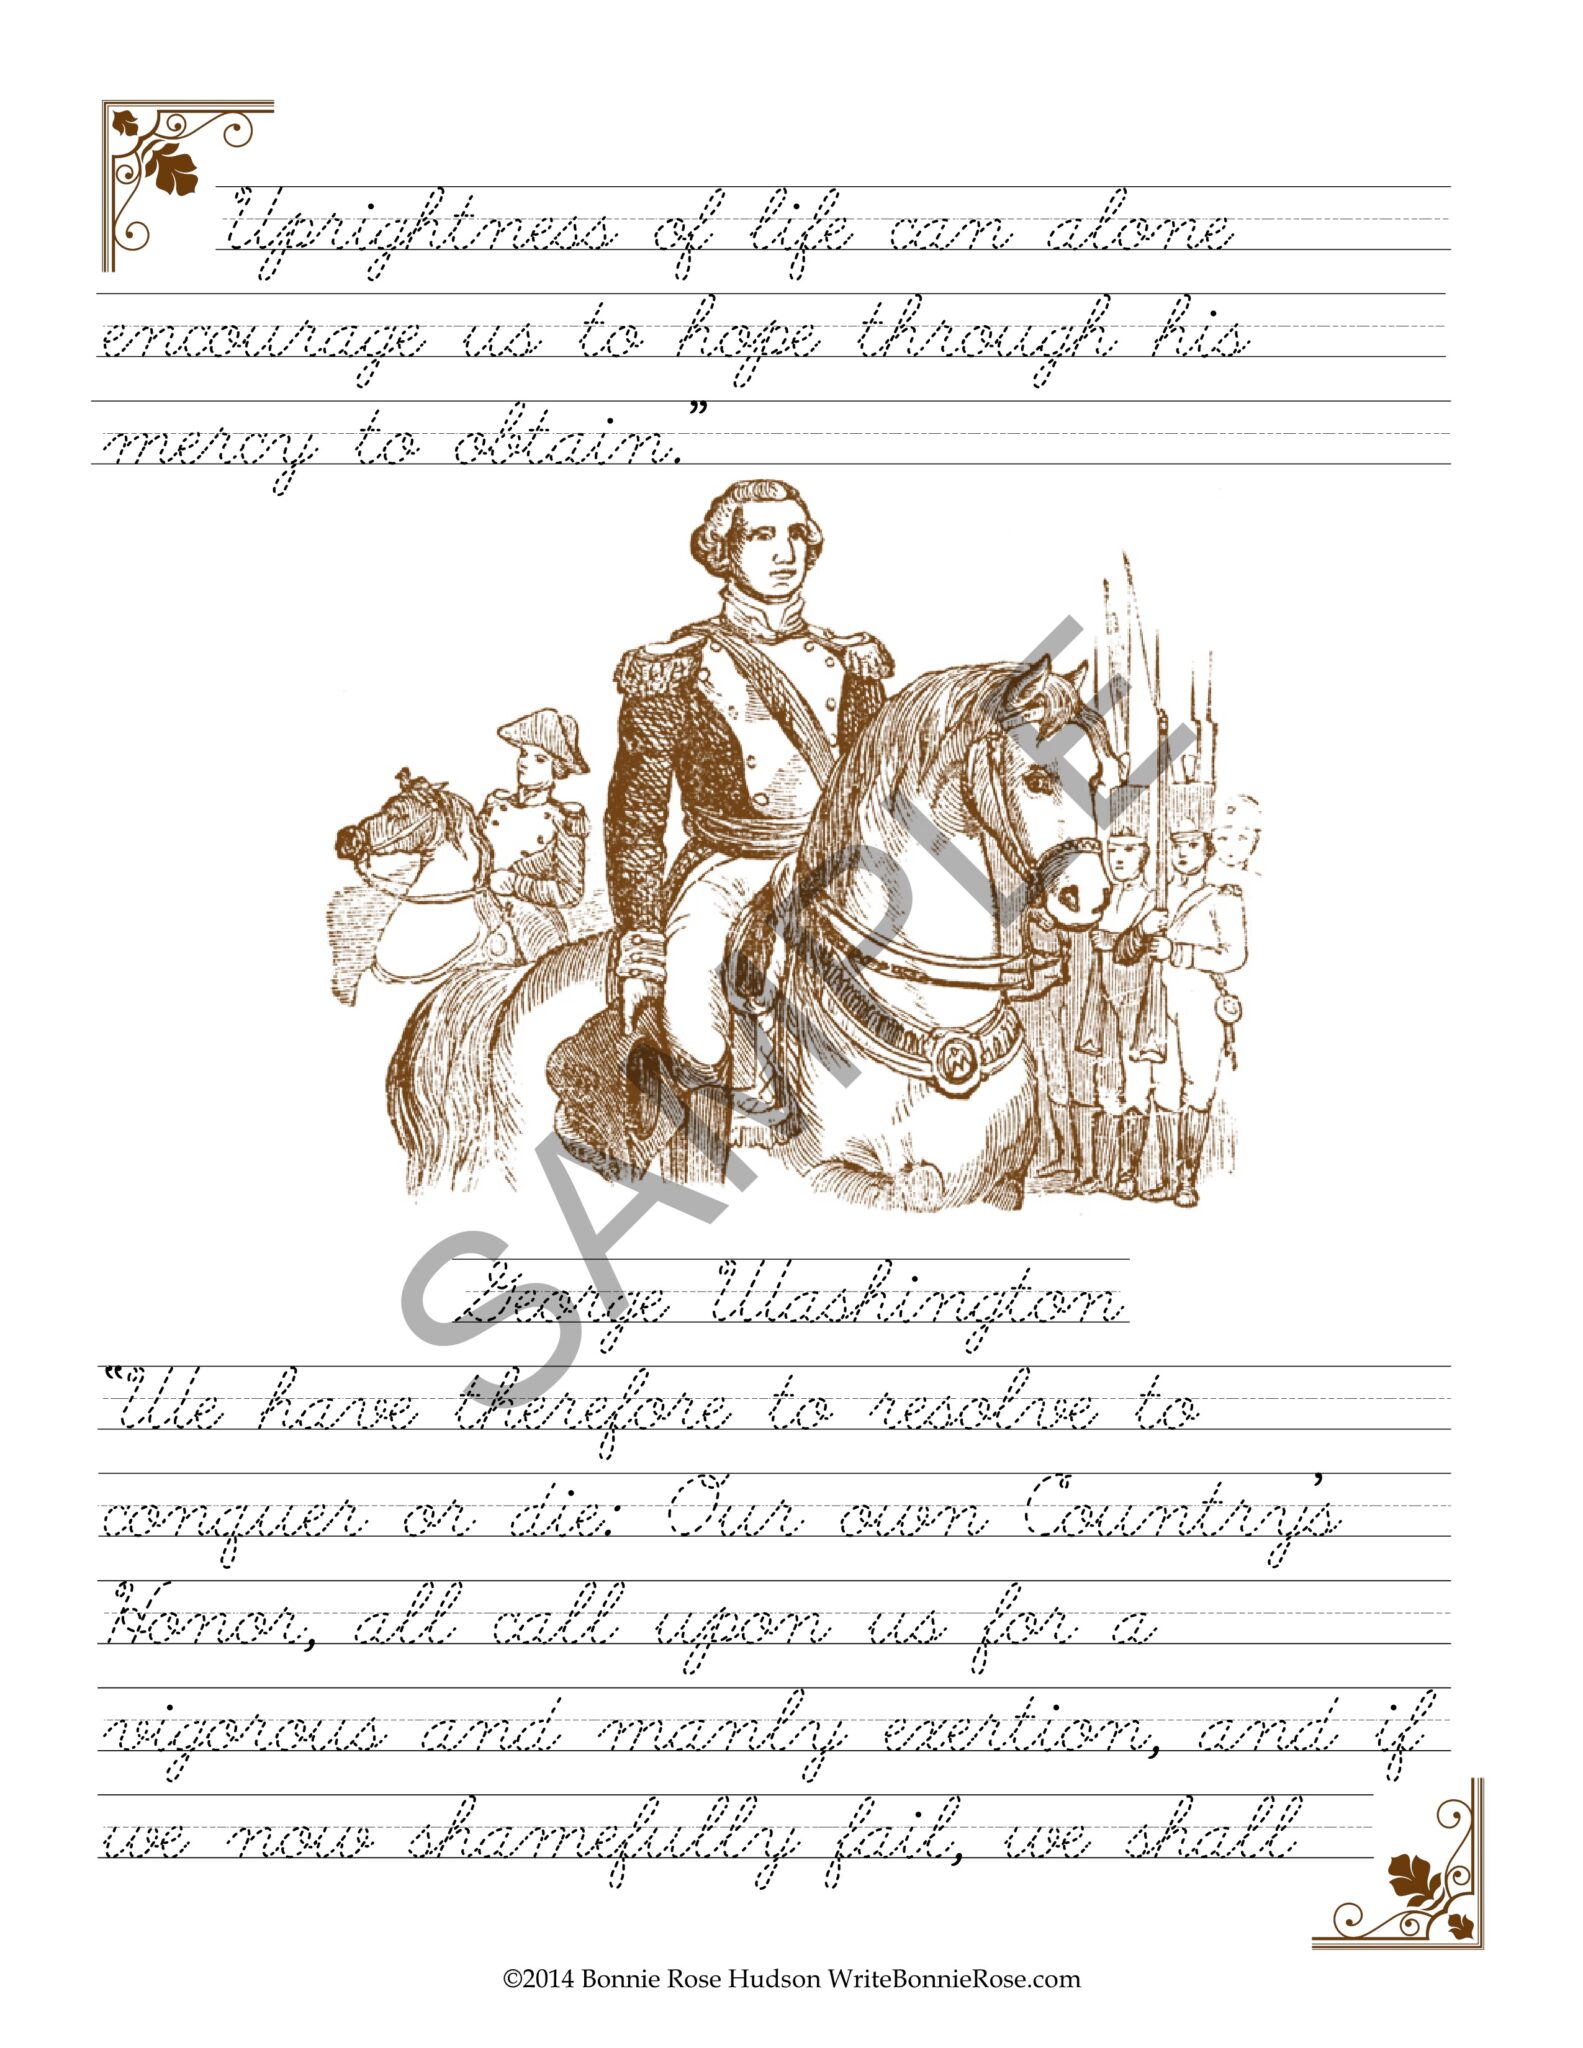 Uprightness of life can alone
encourage us to hope through his
mercy to obtain.”
SAMPLE
George Washington
“We have therefore to resolve to
conquer or die: Our own Country’s
Honor, all call upon us for a
vigorous and manly exertion, and if
we now shamefully fail, we shall
©2014 Bonnie Rose Hudson WriteBonnieRose.com